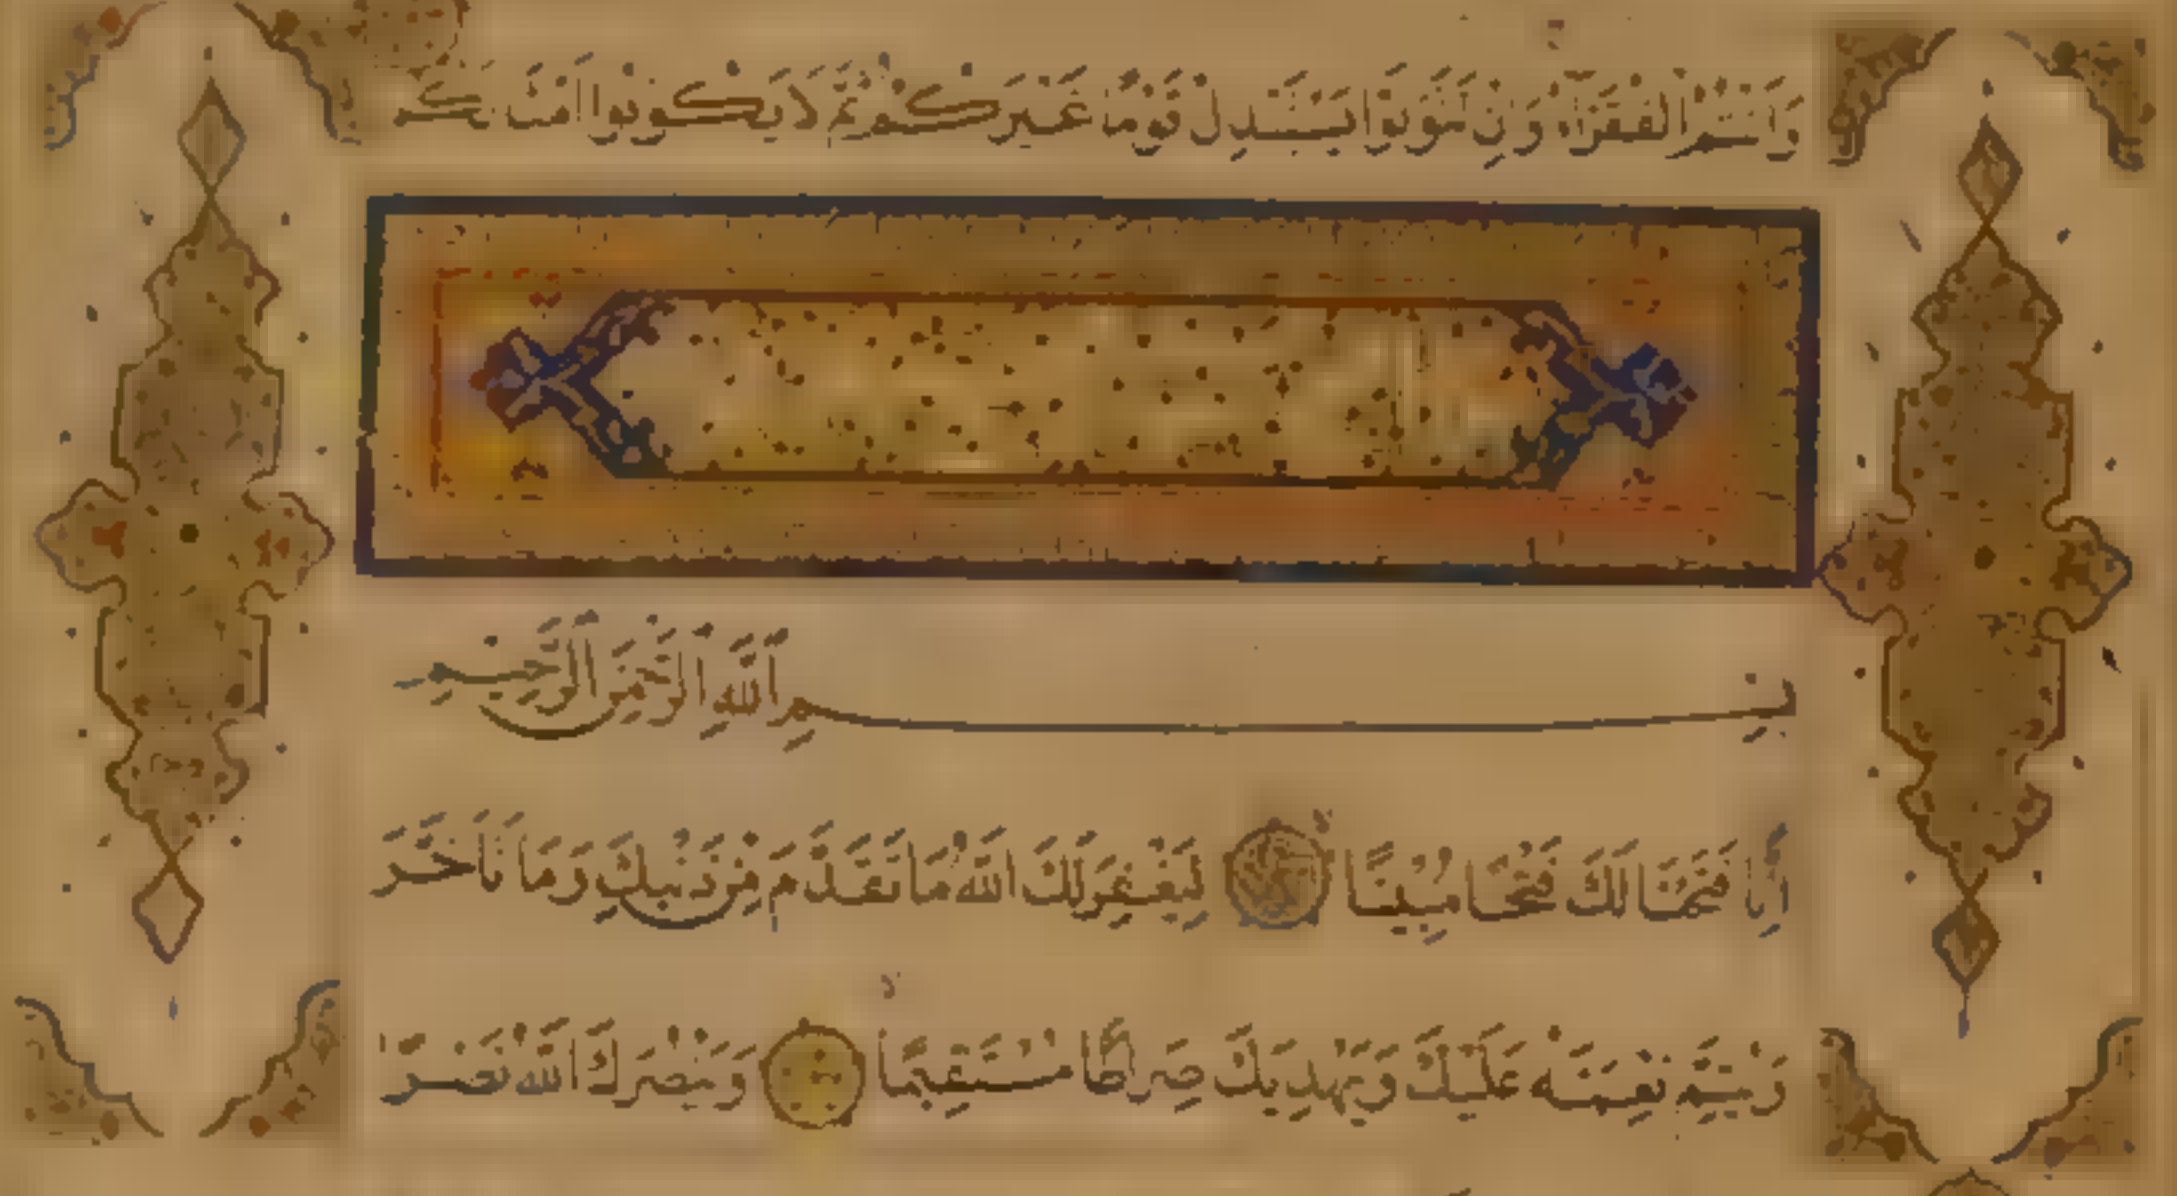 وَاَنْتُمُ الْفُقَرَآءُ وَاِنْ تَتَوَلَّوْا يَسْتَبْدِلْ قَوْمًا غَيْرَكُمْ ثُمَّ لَا يَكُونُوا اَمْثَالَكُمْ
بِسْمِ اللّٰهِ الرَّحْمٰنِ الرَّحِيمِ
اِنَّا فَتَحْنَا لَكَ فَتْحًا مُبِينًا لِيَغْفِرَ لَكَ اللّٰهُ مَا تَقَدَّمَ مِنْ ذَنْبِكَ وَمَا تَاَخَّرَ
وَيُتِمَّ نِعْمَتَهُ عَلَيْكَ وَيَهْدِيَكَ صِرَاطًا مُسْتَقِيمًا وَيَنْصُرَكَ اللّٰهُ نَصْرًا